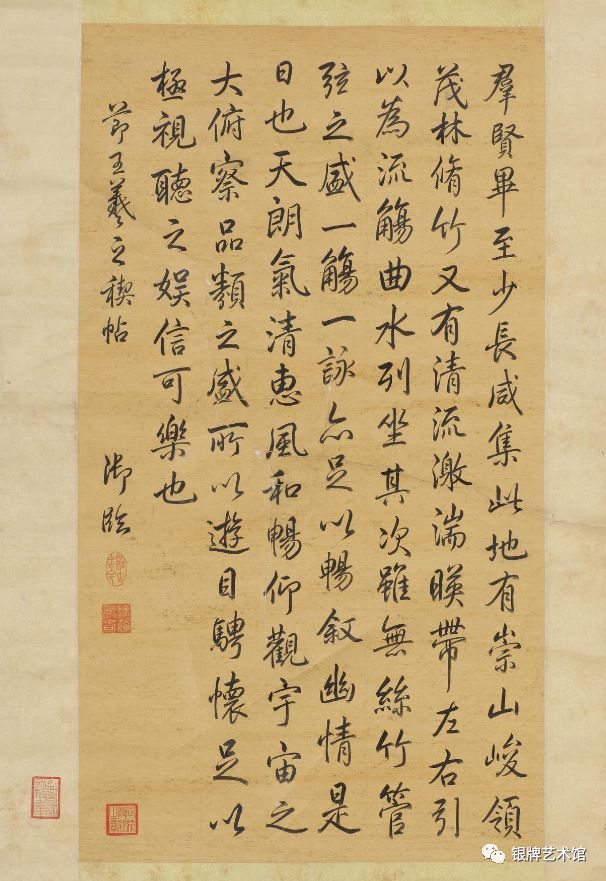 羣賢畢至少長咸集此地有崇山峻領
茂林脩竹又有清流激湍暎帶左右引
以為流觴曲水列坐其次雖無絲竹管
弦之盛一觴一詠亦足以暢敘幽情是
日也天朗氣清惠風和暢仰觀宇宙之
大俯察品類之盛所以遊目騁懷足以
極視聽之娛信可樂也
節王羲之禊帖
御臨
银牌艺术馆